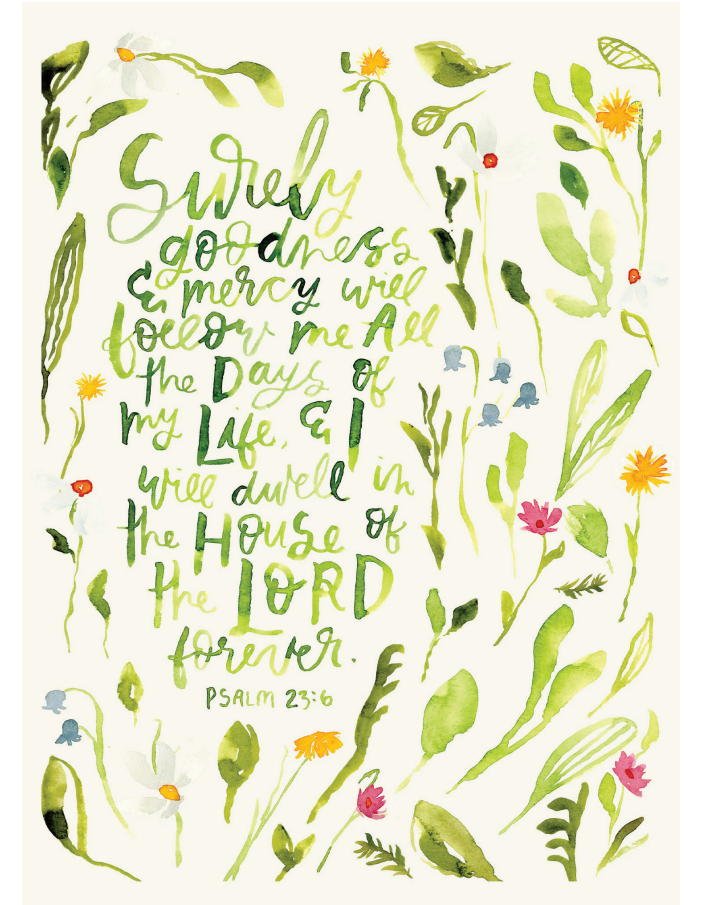 Surely
goodness
& mercy will
follow me All
the Days of
my Life, & I
will dwell in
the House of
the LORD
forever.
PSALM 23:6